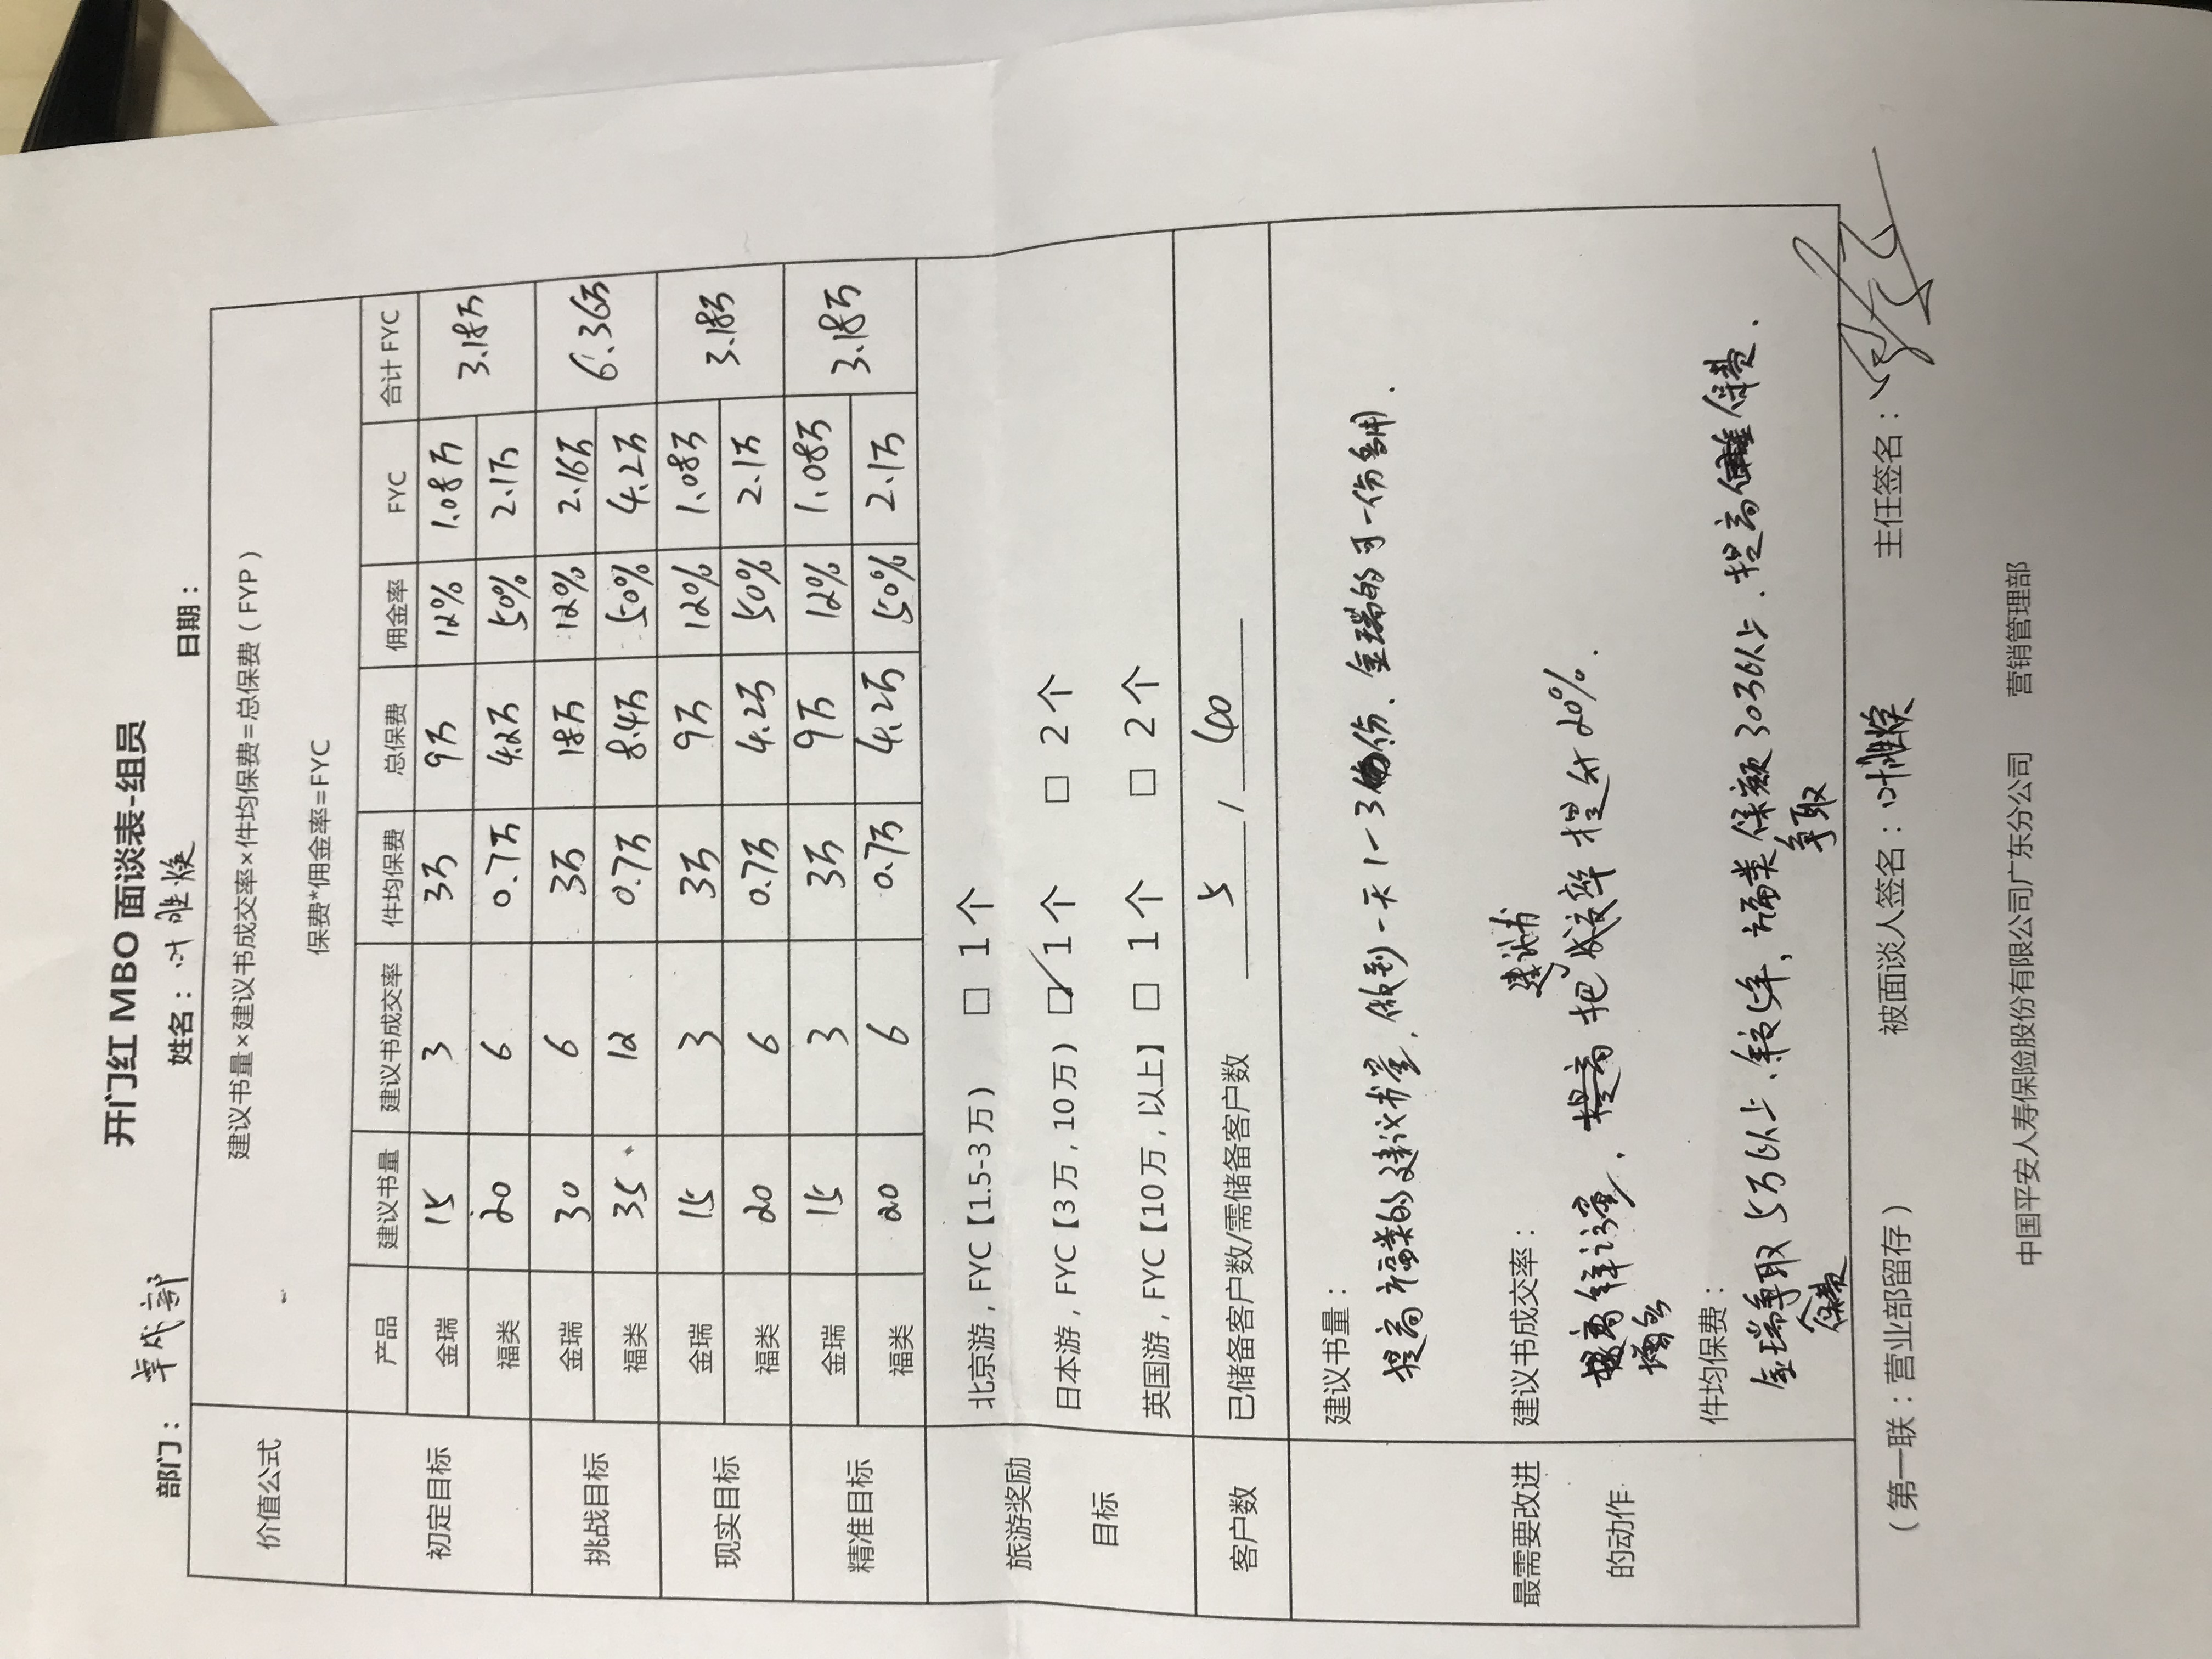 开门红 MBO 面谈表-组员
部门：卓成部 姓名：叶雅焕 日期：
价值公式 建议书量×建议书成交率×件均保费=总保费（FYP）
保费*佣金率=FYC
产品 建议书量 建议书成交率 件均保费 总保费 佣金率 FYC 合计 FYC
初定目标 金瑞 15 3 3万 9万 12% 1.08万 3.18万
福类 20 6 0.7万 4.2万 50% 2.1万
挑战目标 金瑞 30 6 3万 18万 12% 2.16万 6.36万
福类 35 12 0.7万 8.4万 50% 4.2万
现实目标 金瑞 15 3 3万 9万 12% 1.08万 3.18万
福类 20 6 0.7万 4.2万 50% 2.1万
精准目标 金瑞 15 3 3万 9万 12% 1.08万 3.18万
福类 20 6 0.7万 4.2万 50% 2.1万
旅游奖励
目标
北京游，FYC【1.5-3万） □ 1个
日本游，FYC【3万，10万） ☑ 1个 □ 2个
英国游，FYC【10万，以上】 □ 1个 □ 2个
客户数 已储备客户数/需储备客户数 5 / 40
最需要改进
的动作
建议书量：
提高福类的建议书量，做到一天1-3份、金瑞的可一份多用.
建议书成交率：
增多 把建议书成交率提升20%.
件均保费：
金瑞争取5万以上保费、福类争取保额30万以上.提高保费.
（第一联：营业部留存） 被面谈人签名：叶雅焕 主任签名：
中国平安人寿保险股份有限公司广东分公司 营销管理部